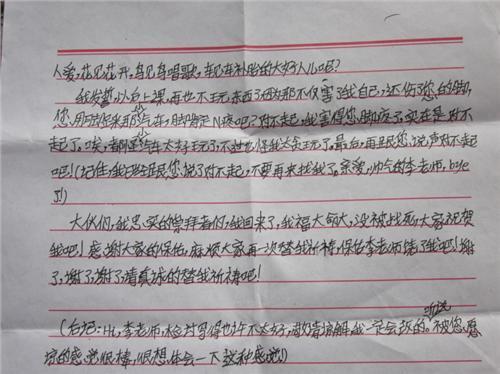 人爱,花见花开,鸟见鸟唱歌,车见车补胎的大好人儿吧?
我发誓,以后上课,再也不玩东西了。因那不仅害了我自己,还伤了您的脚,
您用脚踩那气在,脚肿疼吧?对不起,我害得您脚疼了,实在是对不
起了,唉,都是太好玩了,不过也怪我太贪玩了,最后,再跟您说声对不起
吧!(记住,我已经跟您说了对不起,不要再来找我了,亲爱,帅气的李老师,bye
了!)
大伙们,我忠实的崇拜者们,我回来了,我福大命大,没被找死,大家祝贺
我吧!感谢大家的保佑,麻烦大家再一次替我祈祷,保佑李老师饶了我吧!谢
了,谢了,谢了,请真诚的替我祈祷吧!
听说
(后记:Hi,李老师,检讨写得也许不太好,敬请谅解,我一定会改的。被您原
谅的感觉很棒,很想体会一下这种感觉)